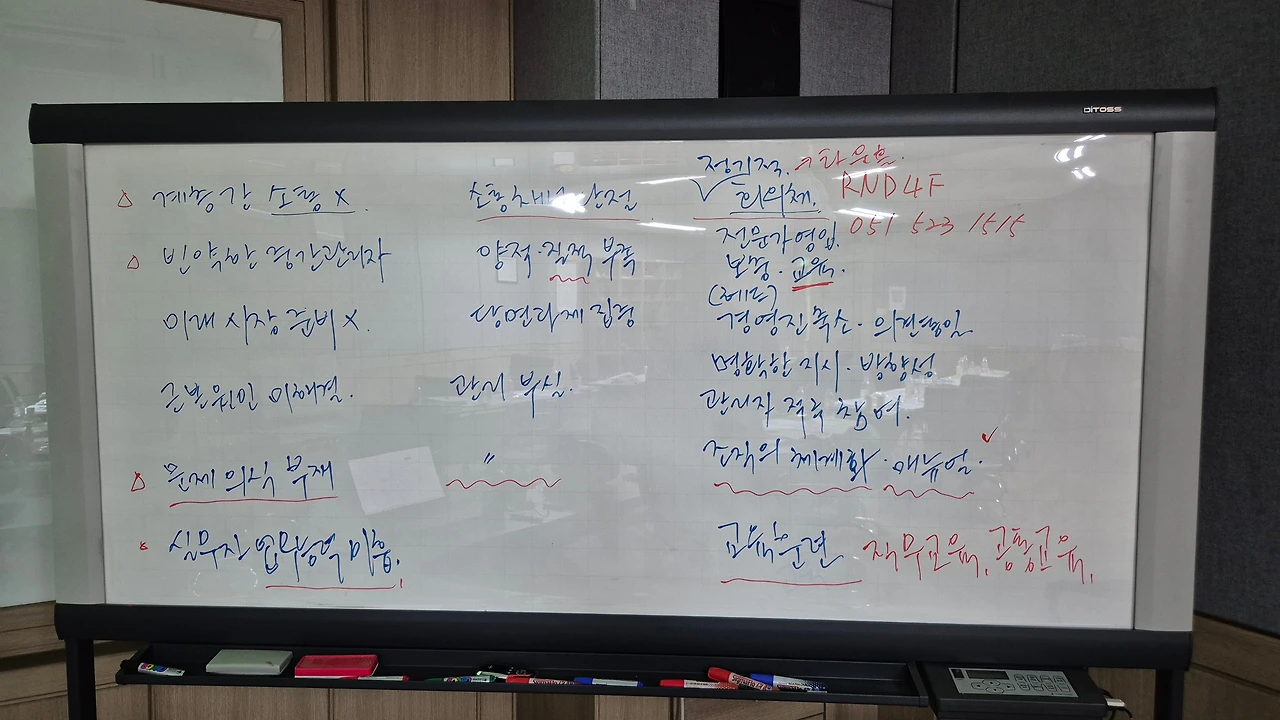 DITOSS
계층간 소통 X. 소통채널 단절 정기적. 회의체. → 타운홀.
RND4F
051 523 1515
빈약한 중간관리자 양적·질적 부족 전문가영입. 보강·교육.
(제도)
미래 시장 준비 X. 당면과제 집중 경영진 축소·의견통일
명확한 지시·방향성
근본원인 미해결. 관리 부실. 관리자 적극 참여.
문제 의식 부재 〃 조직의 체계화·매뉴얼.
실무자 업무능력 미흡. 교육훈련 직무교육, 공통교육,